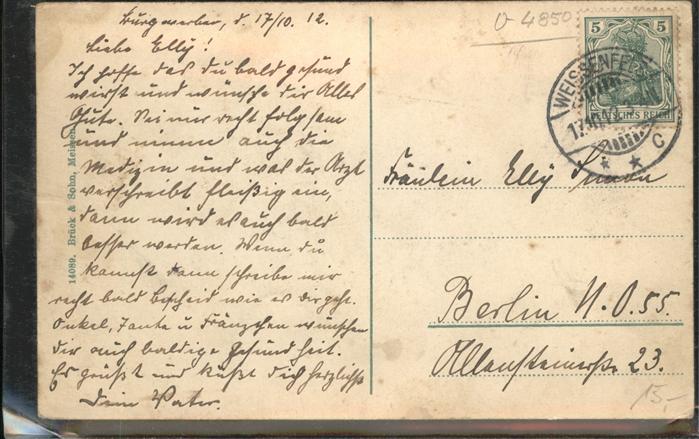 Burgwerben, d. 17/10. 12.
Liebe Elly!
Ich hoffe das du bald gesund
wirst und wünsche dir Alles
Gute. Sei nur recht folgsam
und nimm auch die
Medizin und was der Arzt
verschreibt fleißig ein,
dann wird es auch bald
besser werden. Wenn du
kannst dann schreibe mir
recht bald bescheid wie es dir geht.
Onkel, Tante u Fränzchen wünschen
dir auch baldige Gesundheit.
Es grüßt und küßt dich herzlichst
Dein Vater.
14089. Brück & Sohn, Meissen
0-4850
5 5
DEUTSCHES REICH
WEISSENFELS
C
Fräulein Elly Simon
Berlin N.O.55.
Allensteinerstr. 23.
15,-